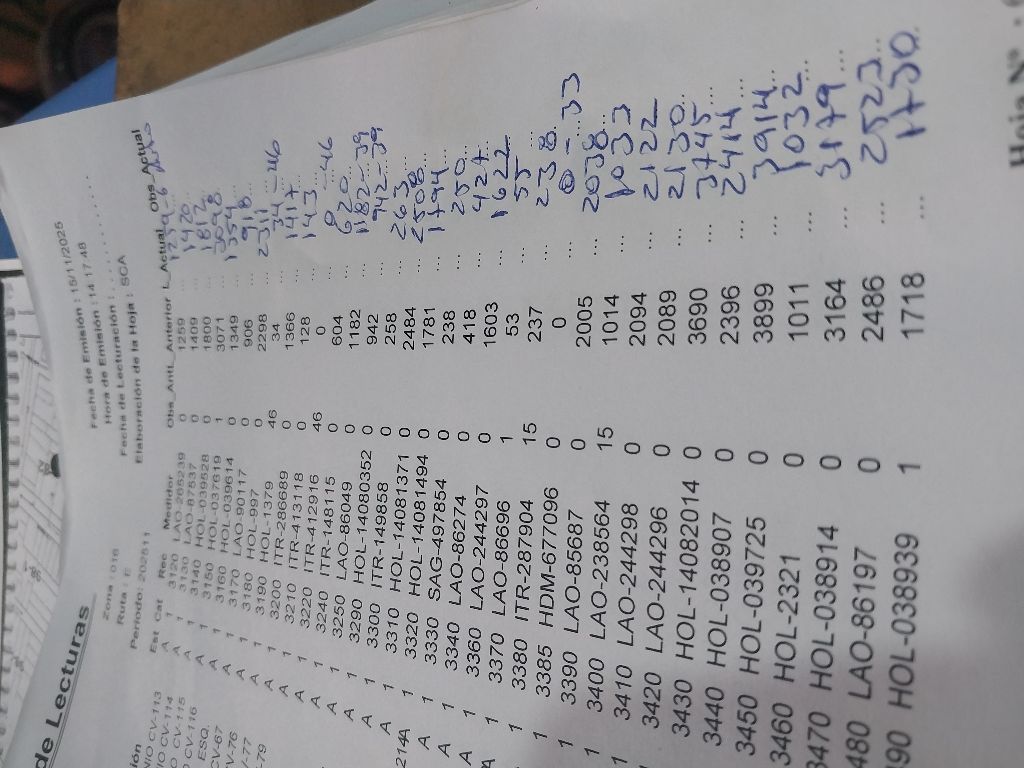 de Lecturas
Fecha de Emisión : 15/11/2025
Hora de Emisión : 14:17:48
Zona : 016
Fecha de Lecturación : . . . . . . . . .
Ruta : E
Elaboración de la Hoja : SCA
Periodo: 202511
ión Est Cat Rec Medidor Obs_Ant L_Anterior L_Actual Obs_Actual
NIO CV-113 A 1 3120 LAO-265239 0 1259 ... 1259-6
CV-114 A 1 3130 LAO-87537 0 1409 ... 1420
CV-115 A 1 3140 HOL-039528 0 1800 ... 1817
CV-116 A 1 3150 HOL-037619 1 3071 ... 3098
ESQ. A 1 3160 HOL-039614 0 1349 ... 1354
CV-67 A 1 3170 LAO-90117 0 906 ... 918
V-76 A 1 3180 HOL-997 0 2298 ... 2311
-77 A 1 3190 HOL-1379 46 34 ... 34-46
-79 A 1 3200 ITR-286689 0 1366 ... 1417
A 1 3210 ITR-413118 0 128 ... 143
A 1 3220 ITR-412916 46 0 ... 0-46
A 1 3240 ITR-148115 0 604 ... 620
A 1 3250 LAO-86049 0 1182 ... 1182-39
A 1 3290 HOL-14080352 0 942 ... 942-39
A 1 3300 ITR-149858 0 258 ... 263
A 1 3310 HOL-14081371 0 2484 ... 2508
214A A 1 3320 HOL-14081494 0 1781 ... 1794
A 1 3330 SAG-497854 0 238 ... 250
A 1 3340 LAO-86274 0 418 ... 427
A 1 3360 LAO-244297 0 1603 ... 1622
1 3370 LAO-86696 1 53 ... 55
1 3380 ITR-287904 15 237 ... 238
1 3385 HDM-677096 0 0 ... 0-33
1 3390 LAO-85687 0 2005 ... 2038
1 3400 LAO-238564 15 1014 ... 1033
1 3410 LAO-244298 0 2094 ... 2122
3420 LAO-244296 0 2089 ... 2130
3430 HOL-14082014 0 3690 ... 3745
3440 HOL-038907 0 2396 ... 2414
3450 HOL-039725 0 3899 ... 3914
3460 HOL-2321 0 1011 ... 1032
3470 HOL-038914 0 3164 ... 3179
480 LAO-86197 0 2486 ... 2523
90 HOL-038939 1 1718 ... 1730
Hoja Nº .